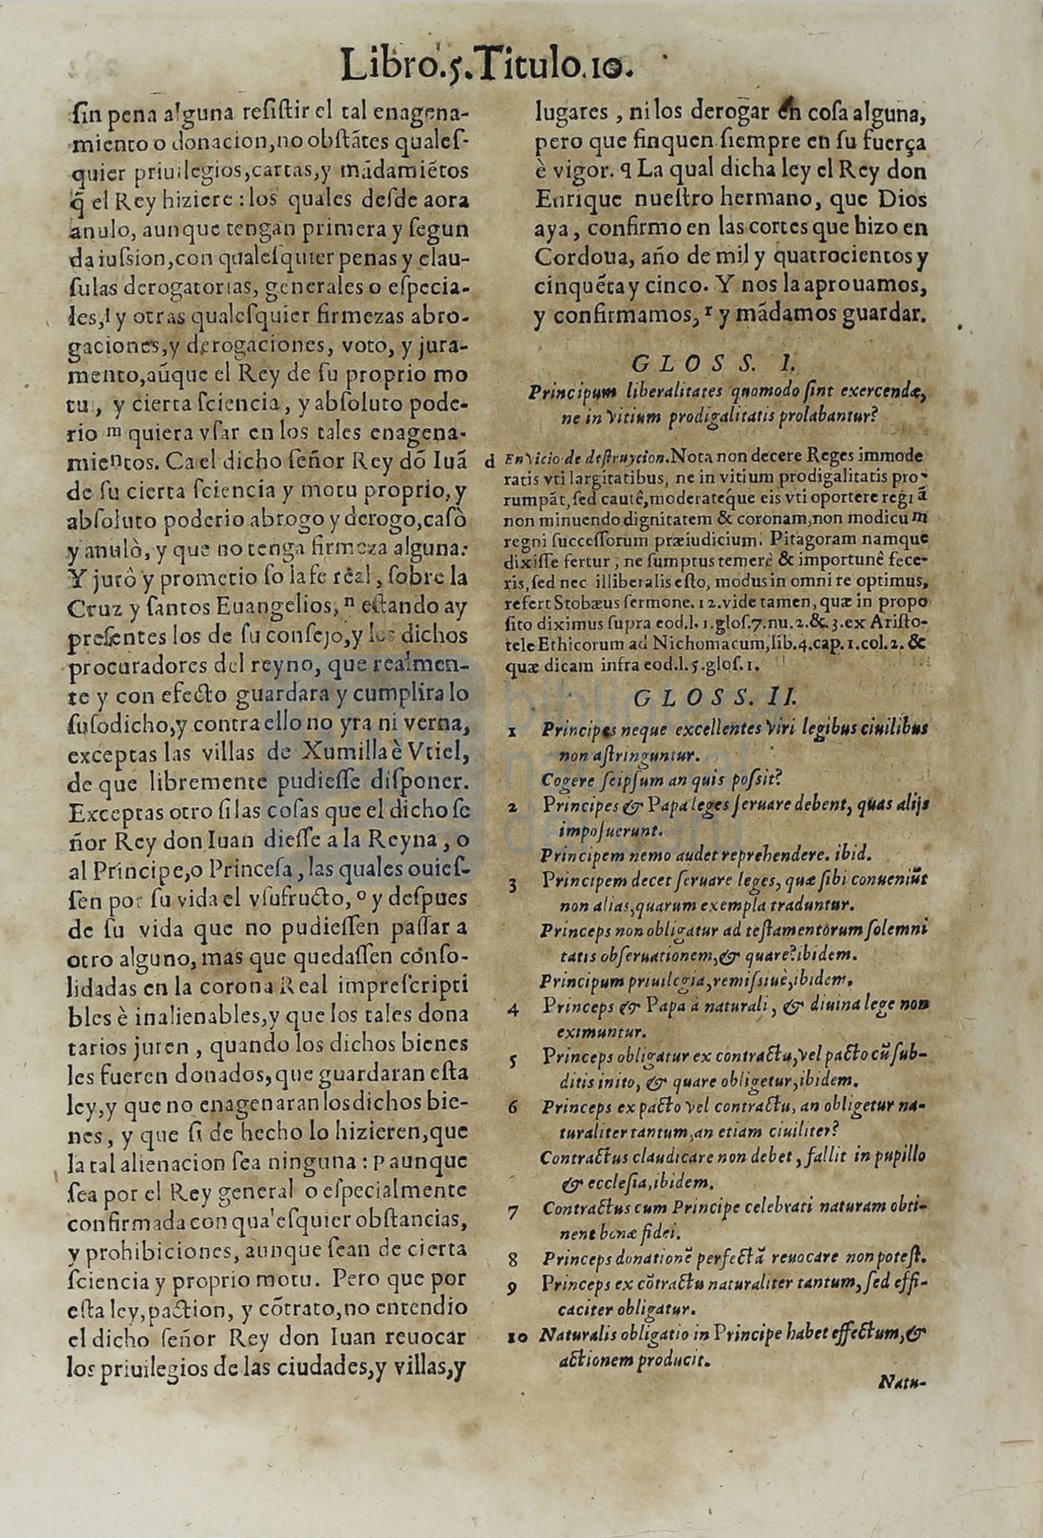 Libro.5.Titulo.10.
ſin pena alguna reſiſtir el tal enagena-
miento o donacion,no obſtãtes qualeſ-
quier priuilegios,cartas,y mãdamiẽtos
q̃ el Rey hiziere : los quales deſde aora
anulo, aunque tengan primera y ſegun
da iuſsion,con qualeſquier penas y clau-
ſulas derogatorias, generales o eſpecia-
les,l y otras qualeſquier firmezas abro-
gaciones,y derogaciones, voto, y jura-
mento,aũque el Rey de ſu proprio mo
tu , y cierta ſciencia, y abſoluto pode-
rio m quiera vſar en los tales enagena-
mientos. Ca el dicho ſeñor Rey dõ Iuã
de ſu cierta ſciencia y motu proprio,y
abſoluto poderio abrogo y derogo,caſò
y anulò, y que no tenga firmeza alguna:
Y jurò y prometio ſo la fe rèal, ſobre la
Cruz y ſantos Euangelios, n eſtando ay
preſentes los de ſu conſejo,y los dichos
procuradores del reyno, que realmen-
te y con efecto guardara y cumplira lo
ſuſodicho,y contra ello no yra ni verna,
exceptas las villas de Xumilla è Vtiel,
de que libremente pudieſſe diſponer.
Exceptas otro ſi las coſas que el dicho ſe
ñor Rey don Iuan dieſſe a la Reyna , o
al Principe,o Princeſa, las quales ouieſ-
ſen por ſu vida el vſufructo, o y deſpues
de ſu vida que no pudieſſen paſſar a
otro alguno, mas que quedaſſen conſo-
lidadas en la corona Real impreſcripti
bles è inalienables,y que los tales dona
tarios juren , quando los dichos bienes
les fueren donados,que guardaran eſta
ley,y que no enagenaran los dichos bie-
nes , y que ſi de hecho lo hizieren,que
la tal alienacion ſea ninguna : p aunque
ſea por el Rey general o eſpecialmente
confirmada con qualeſquier obſtancias,
y prohibiciones, aunque ſean de cierta
ſciencia y proprio motu. Pero que por
eſta ley,paction, y cõtrato,no entendio
el dicho ſeñor Rey don Iuan reuocar
los priuilegios de las ciudades,y villas,y
lugares , ni los derogar en coſa alguna,
pero que finquen ſiempre en ſu fuerça
è vigor. q La qual dicha ley el Rey don
Enrique nueſtro hermano, que Dios
aya , confirmo en las cortes que hizo en
Cordoua, año de mil y quatrocientos y
cinquẽta y cinco. Y nos la aprouamos,
y confirmamos, r y mãdamos guardar.
GLOSS. I.
Principum liberalitates quomodo ſint exercendæ,
ne in vitium prodigalitatis prolabantur?
d En vicio de deſtruycion.Nota non decere Reges immode
ratis vti largitatibus, ne in vitium prodigalitatis pro-
rumpãt,ſed cautè,moderatéque eis vti oportere regi ã
non minuendo dignitatem & coronam,non modicum
regni ſucceſſorum præiudicium. Pitagoram namque
dixiſſe fertur , ne ſumptus temerè & importunè fece-
ris,ſed nec illiberalis eſto, modus in omni re optimus,
refert Stobæus ſermone. 12.vide tamen, quæ in propo
ſito diximus ſupra eod.l. 1.gloſ.7.nu.2.&.3.ex Ariſto-
tele Ethicorum ad Nichomacum,lib.4.cap.1.col.2. &
quæ dicam infra eod.l.5.gloſ.1.
GLOSS. II.
1 Principes neque excellentes viri legibus ciuilibus
non aſtringuntur.
Cogere ſeipſum an quis poſsit?
2 Principes & Papa leges ſeruare debent, quas alijs
impoſuerunt.
Principem nemo audet reprehendere. ibid.
3 Principem decet ſeruare leges, quæ ſibi conueniũt
non alias,quarum exempla traduntur.
Princeps non obligatur ad teſtamentorum ſolemni
tatis obſeruationem,& quare?ibidem.
Principum priuilegia,remiſsiuè,ibidem.
4 Princeps & Papa à naturali , & diuina lege non
eximuntur.
5 Princeps obligatur ex contractu,vel pacto cũ ſub-
ditis inito, & quare obligetur,ibidem.
6 Princeps ex pacto vel contractu, an obligetur na-
turaliter tantum,an etiam ciuiliter?
Contractus claudicare non debet , fallit in pupillo
& eccleſia,ibidem.
7 Contractus cum Principe celebrati naturam obti-
nent bonæ fidei.
8 Princeps donationẽ perfectã reuocare non poteſt.
9 Princeps ex cõtractu naturaliter tantum, ſed effi-
caciter obligatur.
10 Naturalis obligatio in Principe habet effectum,&
actionem producit.
Natu-